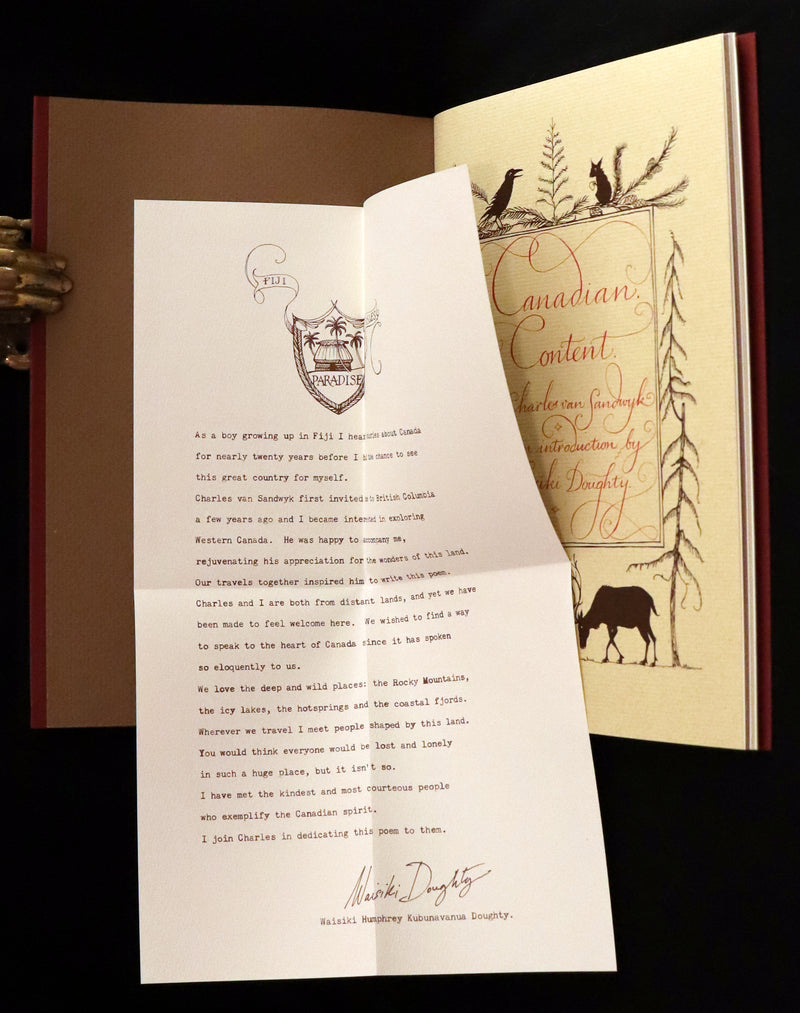 FIJI
PARADISE
As a boy growing up in Fiji I hear stories about Canada
for nearly twenty years before I the chance to see
this great country for myself.
Charles van Sandwyk first invited me to British Columbia
a few years ago and I became interested in exploring
Western Canada. He was happy to accompany me,
rejuvenating his appreciation for the wonders of this land.
Our travels together inspired him to write this poem.
Charles and I are both from distant lands, and yet we have
been made to feel welcome here. We wished to find a way
to speak to the heart of Canada since it has spoken
so eloquently to us.
We love the deep and wild places: the Rocky Mountains,
the icy lakes, the hotsprings and the coastal fjords.
Wherever we travel I meet people shaped by this land.
You would think everyone would be lost and lonely
in such a huge place, but it isn't so.
I have met the kindest and most courteous people
who exemplify the Canadian spirit.
I join Charles in dedicating this poem to them.
Waisiki Doughty
Waisiki Humphrey Kubunavanua Doughty.
Canadian.
Content.
Charles van Sandwyk
introduction by
Doughty.